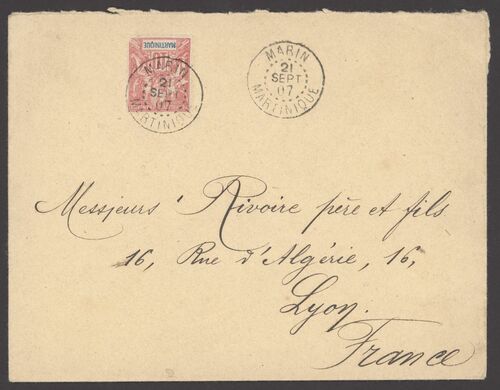 MARTINIQUE
MARIN
21
SEPT
07
MARTINIQUE
MARIN
21
SEPT
07
MARTINIQUE
Messieurs Rivoire père et fils
16, Rue d'Algérie, 16,
Lyon.
France